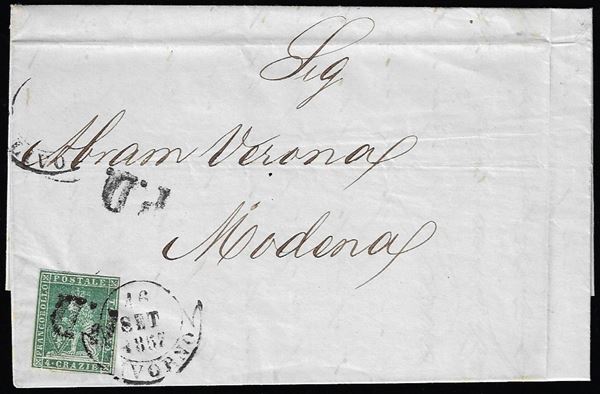 Sig
Abram Verona
LIVO
P.D.
Modena
FRANCOBOLLO POSTALE
4 CRAZIE
16
SET
1857
LIVORNO